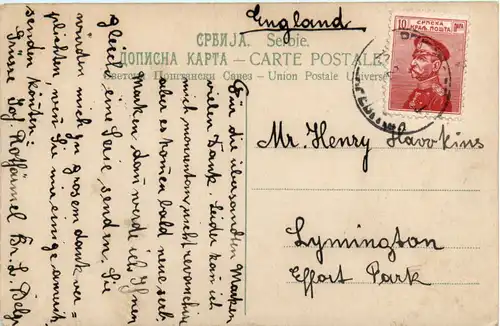 England
СРБИЈА. Serbie.
ДОПИСНА КАРТА — CARTE POSTALE
Светски Поштански Савез — Union Postale Universelle
10 СРПСКА пара
КРАЉ. ПОШТА
Mr. Henry Hawkins
Lymington
Effort Park
Für die übersandten Marken
vielen Dank. Leider kann ich
mich momentan nicht revanchieren
aber es komen bald neue serb.
Marken dan werde ich Ihnen
gleich eine Serie senden. Sie
würden mich zu grosem dank ver-
plichten, wen Sie mir einige
senden könten.
Grüsse Jos. Rothärmel Br. L. Belgr